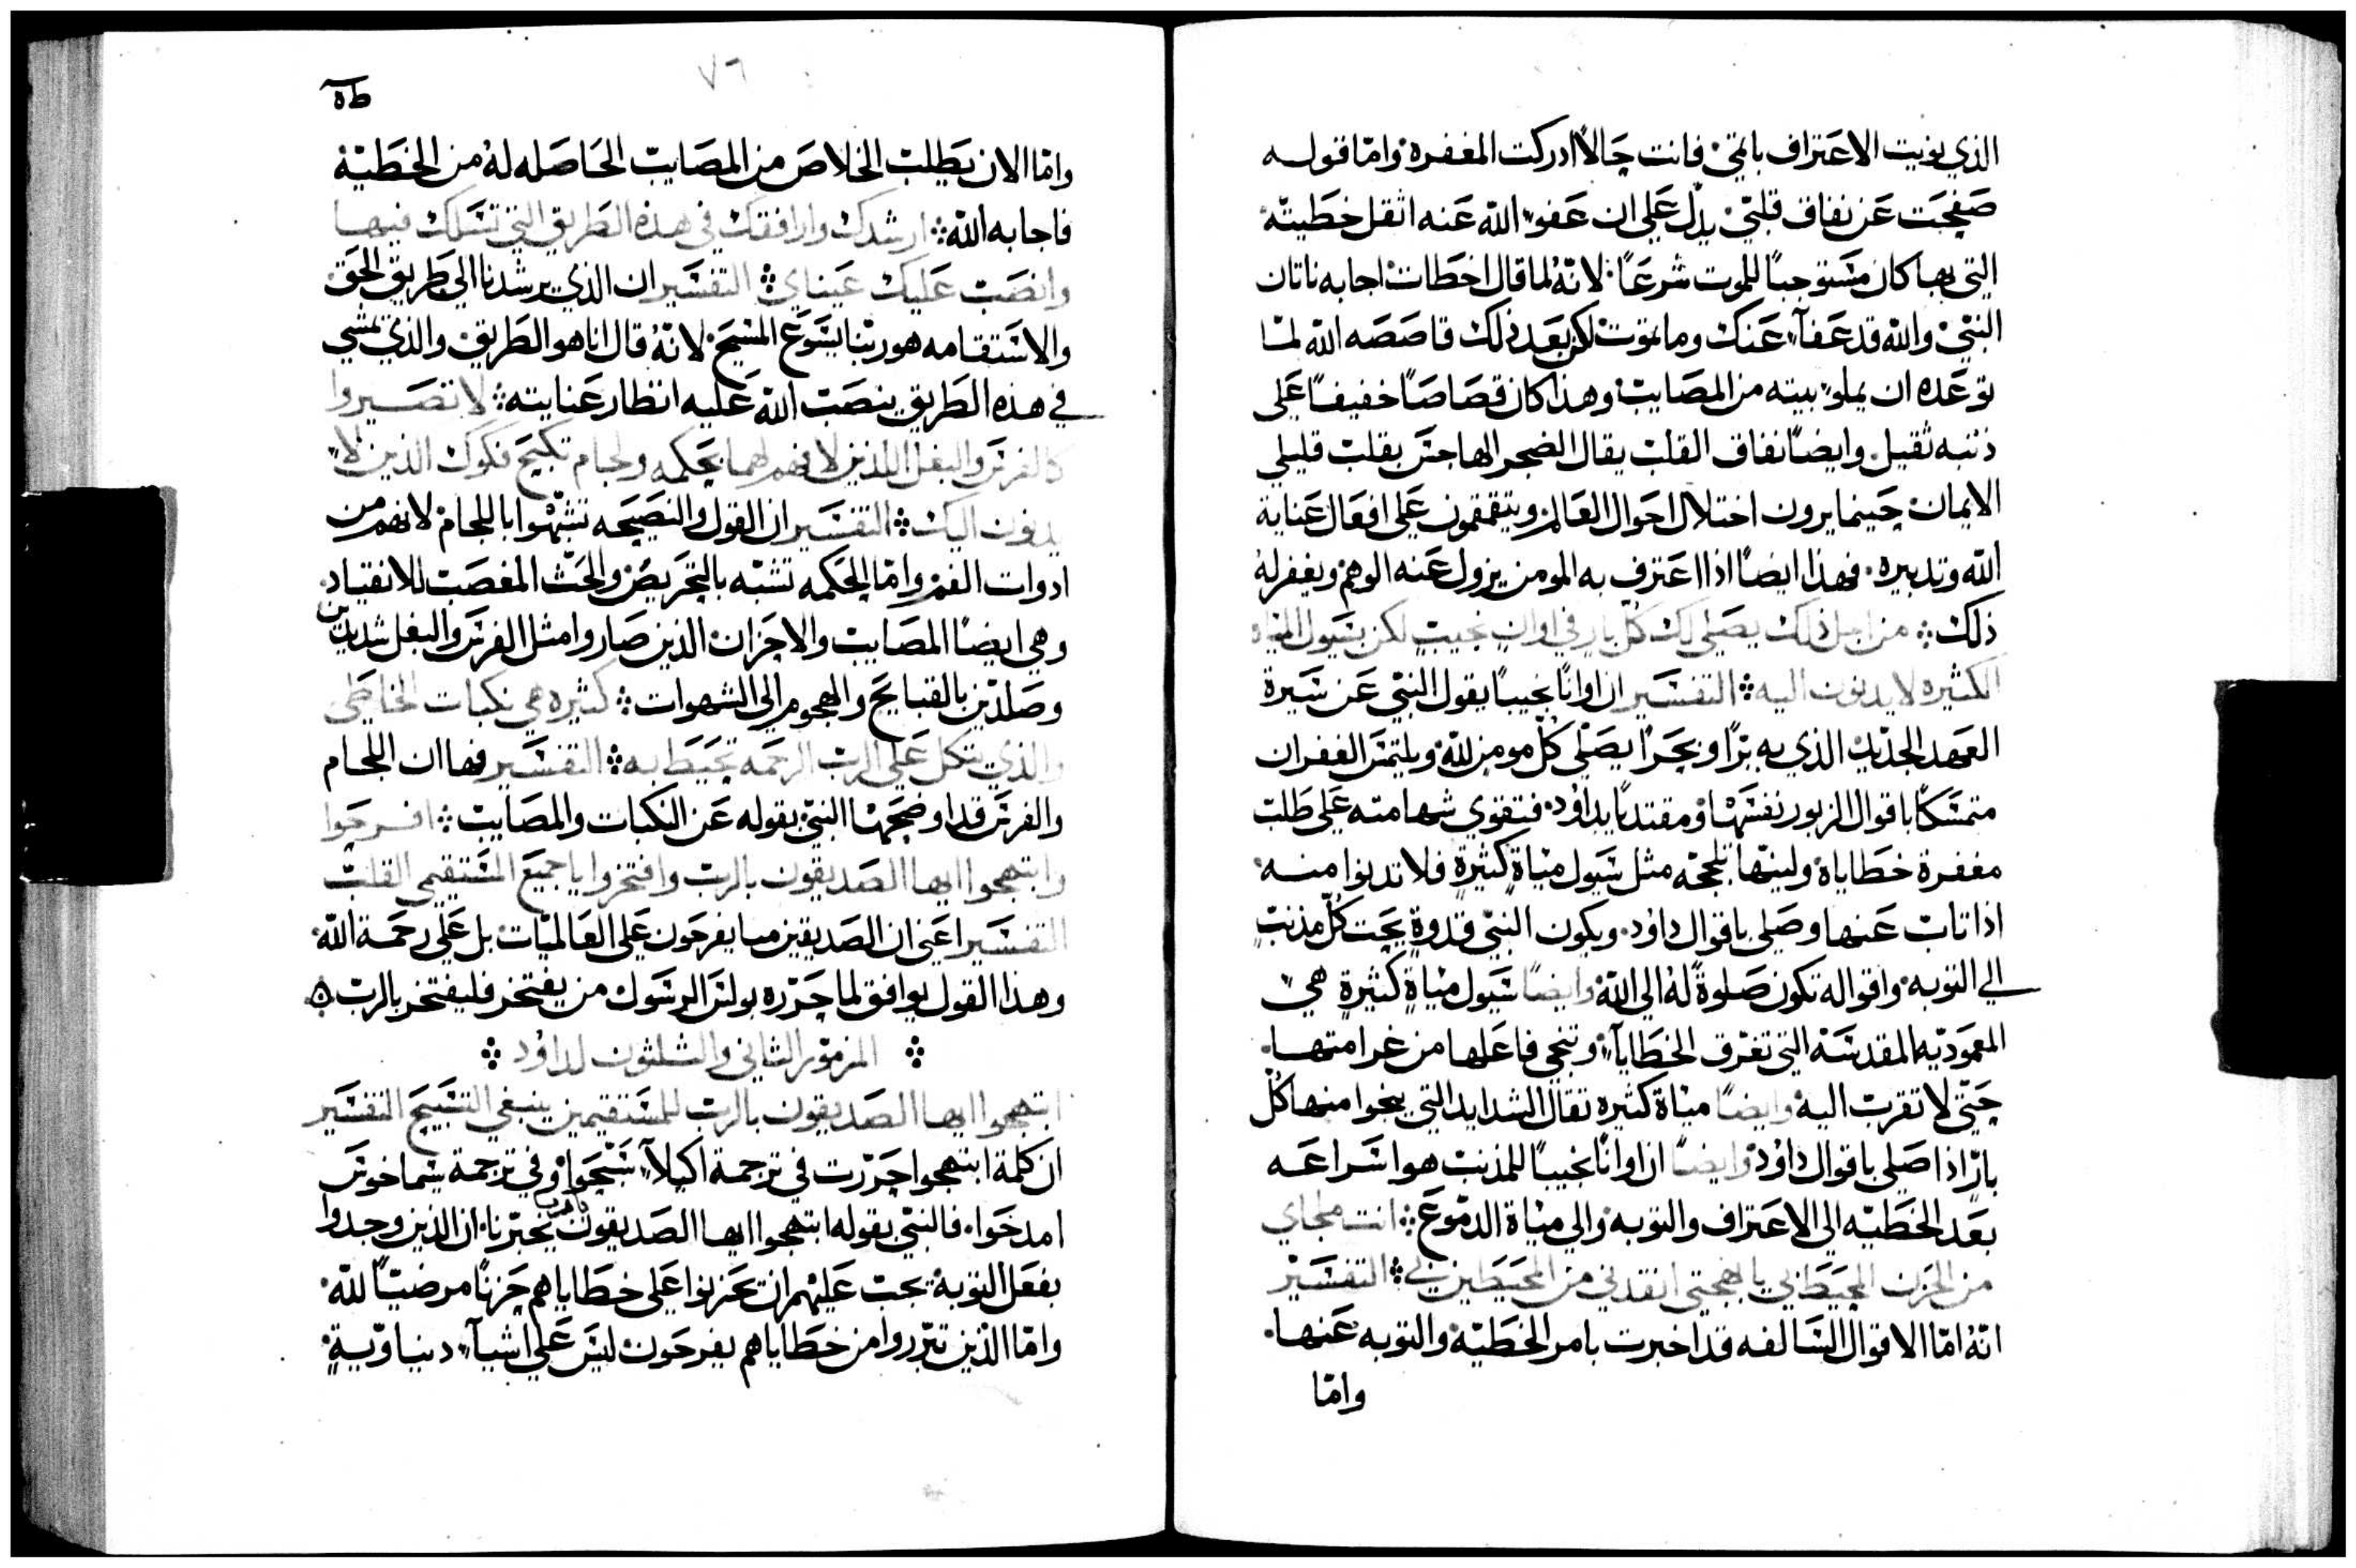 الذي نويت الاعتراف باثمي فانت حالاً ادركت المغفره واما قوله
صفحت عن نفاق قلبي يدل على ان عفو الله عنه اثقل خطيته
التي بها كان مستوجباً للموت شرعاً لانه لما قال اخطات اجابه ناتان
النبي والله قد عفآ عنك وما تموت لكن بعد ذلك قاصصه الله لما
توعده ان يملو بيته من المصايب وهذا كان قصاصاً خفيفاً على
ذنبه ثقيل وايضاً نفاق القلب يقال الضجر الهاجس بقلب قليلي
الايمان حينما يرون اختلال احوال العالم ويتقمقمون على افعال عناية
الله وتدبيره فهذا ايضاً اذا اعترف به المومن يزول عنه الوهم ويغفر له
ذلك من اجل ذلك يصلي لك كل بار في اوان نجيب لكن سيول المياه
الكثيره لا يدنون اليه التفسير ان اواناً نجيباً يقول النبي عن سيرة
العهد الجديد الذي به براً وبحراً يصلي كل مومن لله ويلتمس الغفران
متمسكاً باقوال الزبور نفسها ومقتدياً بداود فتقوي شهامته على طلب
مغفرة خطاياه ولينها تلججه مثل سيول مياه كثيرة فلا تدنوا منه
اذا تاب عنها وصلى باقوال داود ويكون النبي قدوة يحث كل مذنب
الى التوبه واقواله تكون صلوة له الى الله وايضاً سيول مياه كثيرة هي
المعموديه المقدسه التي تغرق الخطايآ وتنجي فاعلها من غرامتها
حتى لا تقرب اليه وايضاً مياه كثيره تقال الشدايد التي ينجوا منها كل
بار اذا صلى باقوال داود وايضاً ان اواناً نجيباً للمذنب هو اسراعه
بعد الخطيه الى الاعتراف والتوبه والى مياه الدموع انت ملجاي
من الحزن المحيط بي يا بهجتي انقذني من المحيطين بي التفسير
انه اما الاقوال السالفه قد اخبرت بامر الخطيه والتوبه عنها
واما
٧٦
واما الان يطلب الخلاص من المصايب الحاصله له من الخطيه
فاجابه الله ارشدك وارافقك في هذه الطريق التي تسلك فيها
وانصب عليك عيناي التفسير ان الذي يرشدنا الى طريق الحق
والاستقامه هو ربنا يسوع المسيح لانه قال انا هو الطريق والذي يمشي
في هذه الطريق ينصب الله عليه انظار عنايته لا تصيروا
كالفرس والبغل اللذين لا فهم لهما بحكمه ولجام تكبح فكوك الذين لا
يدنون اليك التفسير ان القول والنصيحه تشبهوا باللجام لانهم من
ادوات الفم واما الحكمه تشبه بالتحريص والحث المغصب للانقياد
وهي ايضاً المصايب والاحزان الذين صاروا مثل الفرس والبغل شديدين
وصلدين بالقبايح والهجوم الى الشهوات كثيره هي نكبات الخاطي
والذي يتكل على الرب الرحمه تحيط به التفسير فها ان اللجام
والفرس قد اوضحها النبي بقوله عن النكبات والمصايب افرحوا
وابتهجوا ايها الصديقون بالرب وافتخروا يا جميع المستقيمي القلب
التفسير اعني ان الصديقين ما يفرحون على العالميات بل على رحمة الله
وهذا القول يوافق لما حرره بولس الرسول من يفتخر فليفتخر بالرب
المزمور الثاني والثلثون لداود
ابتهجوا ايها الصديقون بالرب للمستقيمين ينبغي التسبيح التفسير
ان كلمة ابتهجوا حررت في ترجمة اكيلآ سبحوا وفي ترجمة سماخوس
امدحوا فالنبي بقوله ابتهجوا ايها الصديقون بالرب يخبرنا ان الذين وجدوا
بفعل التوبه يجب عليهم ان يحزنوا على خطاياهم حزناً مرضياً لله
واما الذين تبرروا من خطاياهم يفرحون ليس على اشيآ دنياوية